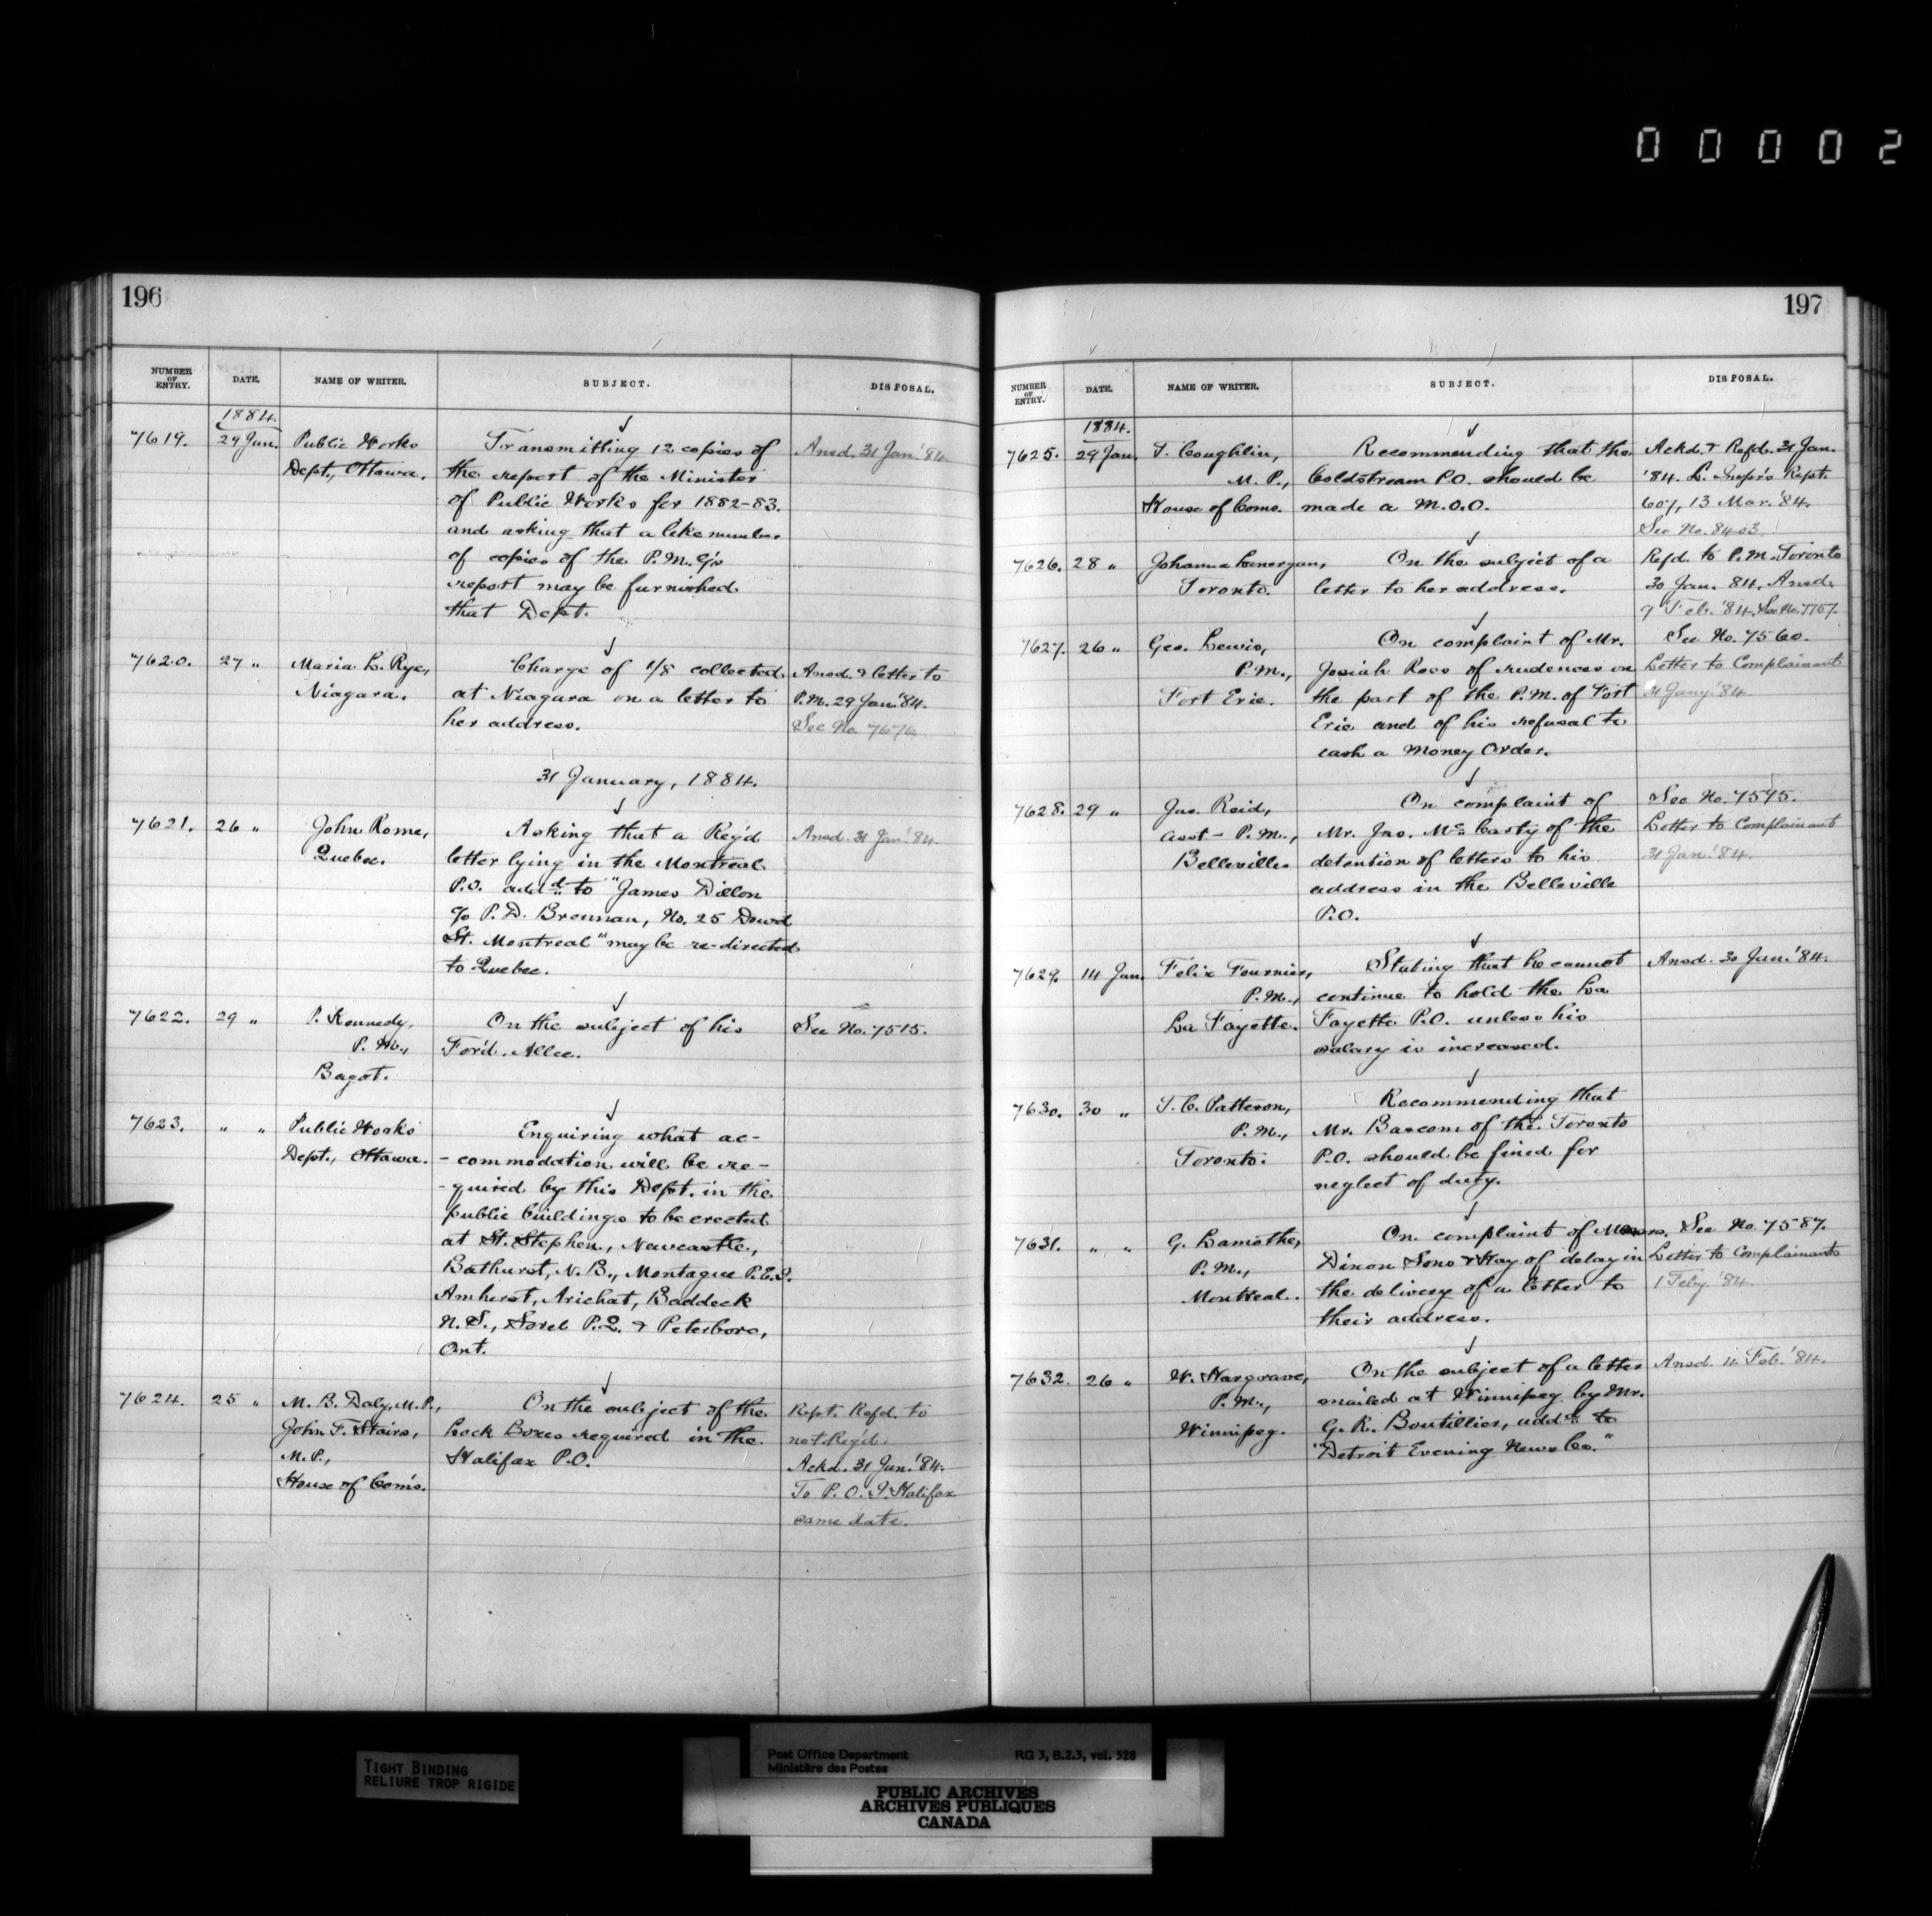 00002
196
NUMBER OF ENTRY. DATE. NAME OF WRITER. SUBJECT. DISPOSAL.
1884.
7619. 29 Jan. Public Works Dept., Ottawa.
Transmitting 12 copies of
the report of the Minister
of Public Works for 1882-83.
and asking that a like number
of copies of the P.M.G's
report may be furnished
that Dept.
Ansd. 31 Jan. '84.
7620. 27 " Maria L. Rye,
Niagara.
Charge of 1/8 collected
at Niagara on a letter to
her address.
Ansd. & letter to
P.M. 29 Jan. '84.
See No. 7676
31 January, 1884.
7621. 26 " John Rome,
Quebec.
Asking that a Reg'd
letter lying in the Montreal
P.O. addd to "James Dillon
c/o P. D. Brennan, No. 25 Dowd
St. Montreal" may be re-directed
to Quebec.
Ansd. 31 Jan. '84.
7622. 29 " P. Kennedy,
P.M.,
Bagot.
On the subject of his
For'd. Allce.
See No. 7515.
7623. " " Public Works
Dept., Ottawa.
Enquiring what ac-
-commodation will be re-
-quired by this Dept. in the
public buildings to be erected
at St. Stephen, Newcastle,
Bathurst, N.B., Montague P.E.I.
Amherst, Arichat, Baddeck
N.S., Sorel P.Q. & Peterboro,
Ont.
7624. 25 " M. B. Daly, M.P.,
John F. Stairs,
M.P.,
House of Com's.
On the subject of the
Lock Boxes required in the
Halifax P.O.
Rept. Refd. to
not Reg'd.
Ackd. 31 Jan. '84.
To P.O.I. Halifax
same date.
197
NUMBER OF ENTRY. DATE. NAME OF WRITER. SUBJECT. DISPOSAL.
1884.
7625. 29 Jan. T. Coughlin,
M.P.,
House of Coms.
Recommending that the
Coldstream P.O. should be
made a M.O.O.
Ackd. & Refd. 31 Jan.
'84. L. Insp'rs Rept.
607, 13 Mar. '84.
See No. 8403.
7626. 28 " Johanna Lonergan,
Toronto.
On the subject of a
letter to her address.
Refd. to P.M. Toronto
30 Jan. 84. Ansd.
9 Feb. '84. See No. 7757.
7627. 26 " Geo. Lewis,
P.M.,
Fort Erie.
On complaint of Mr.
Josiah Rees of rudeness on
the part of the P.M. of Fort
Erie and of his refusal to
cash a Money Order.
See No. 7560.
Letter to Complainant
31 Jany. '84
7628. 29 " Jas. Reid,
asst- P.M.,
Belleville
On complaint of
Mr. Jno. Mc Carty of the
detention of letters to his
address in the Belleville
P.O.
See No. 7595.
Letter to Complainant
31 Jan. '84.
7629. 14 Jan. Felix Fournier,
P.M.,
La Fayette.
Stating that he cannot
continue to hold the La
Fayette P.O. unless his
salary is increased.
Ansd. 30 Jan. '84.
7630. 30 " T. C. Patteson,
P.M.,
Toronto.
Recommending that
Mr. Bascom of the Toronto
P.O. should be fined for
neglect of duty.
7631. " " G. Lamothe,
P.M.,
Montreal.
On complaint of Messrs.
Dixon Sons & Hay of delay in
the delivery of a letter to
their address.
See No. 7587.
Letter to Complainants
1 Feby. '84.
7632. 26 " W. Hargrave,
P.M.,
Winnipeg.
On the subject of a letter
mailed at Winnipeg by Mr.
G. R. Boutillier, addd to
"Detroit Evening News Co."
Ansd. 4 Feb. '84.
TIGHT BINDING
RELIURE TROP RIGIDE
Post Office Department RG 3, B.2.3, vol. 528
Ministère des Postes
PUBLIC ARCHIVES
ARCHIVES PUBLIQUES
CANADA